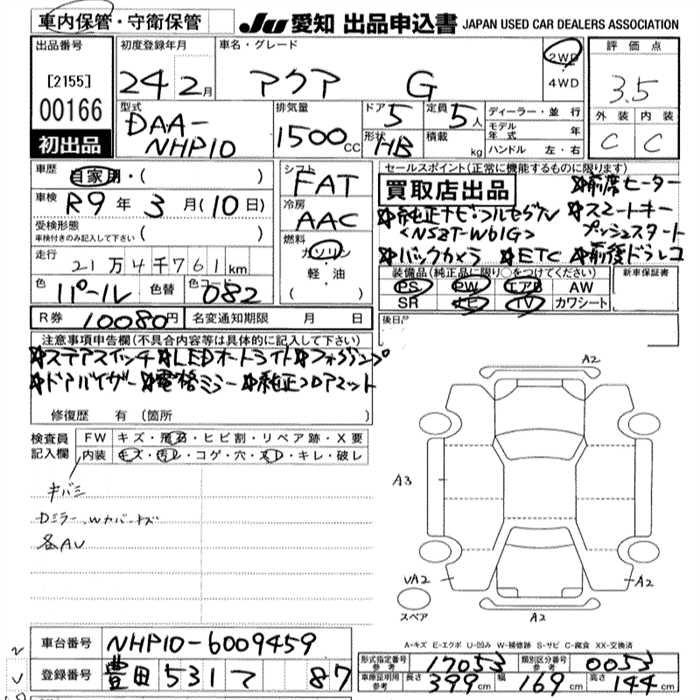 車内保管・守衛保管
JU 愛知 出品申込書 JAPAN USED CAR DEALERS ASSOCIATION
出品番号
[2155]
00166
初出品
初度登録年月
24年2月
車名・グレード
アクア G
2WD
4WD
評価点
3.5
外装 内装
C C
型式
DAA-
NHP10
排気量
1500cc
ドア 5
定員 5人
形状 HB
積載 kg
ディーラー・並行
モデル年式 年
ハンドル 左・右
車歴 自家用・( )
車検 R9年3月(10日)
受検形態
車検付きのみ記入して下さい ( )
走行
21万4千761km
色 パール 色替 色コード 082
シフト
FAT
冷房
AAC
燃料
ガソリン
軽・油
セールスポイント(正常に機能するものに限ります)
買取店出品 *前席ヒーター
*純正ナビ・フルセグTV *スマートキー
<NSZT-W61G> プッシュスタート
*バックカメラ *ETC *前後ドラレコ
装備品(純正品に限り○をつけてください) 新車保証書
PS PW エアB AW
SR ナビ TV カワシート
R券 10080円 名変通知期限 月 日
後日品
注意事項申告欄(不具合内容等は具体的に記入して下さい)
*ステアスイッチ *LEDオートライト *フォグランプ
*ドアバイザー *電格ミラー *純正フロアマット
修復歴 有(箇所 )
検査員
記入欄
FW キズ・飛石・ヒビ割・リペア跡・X要
内装 キズ・汚レ・コゲ・穴・スレ・キレ・破レ
キバミ
Dミラー、Wカバーキズ
各AU
A2
A3
VA2
A2
A2
スペア
A-キズ E-エクボ U-凹み W-補修跡 S-サビ C-腐食 XX-交換済
車台番号 NHP10-6009459
登録番号 豊田 531 て 87
形式指定番号参考 17053 類別区分番号参考 0053
車庫証明用参考 長さ 399cm 幅 169cm 高さ 144cm